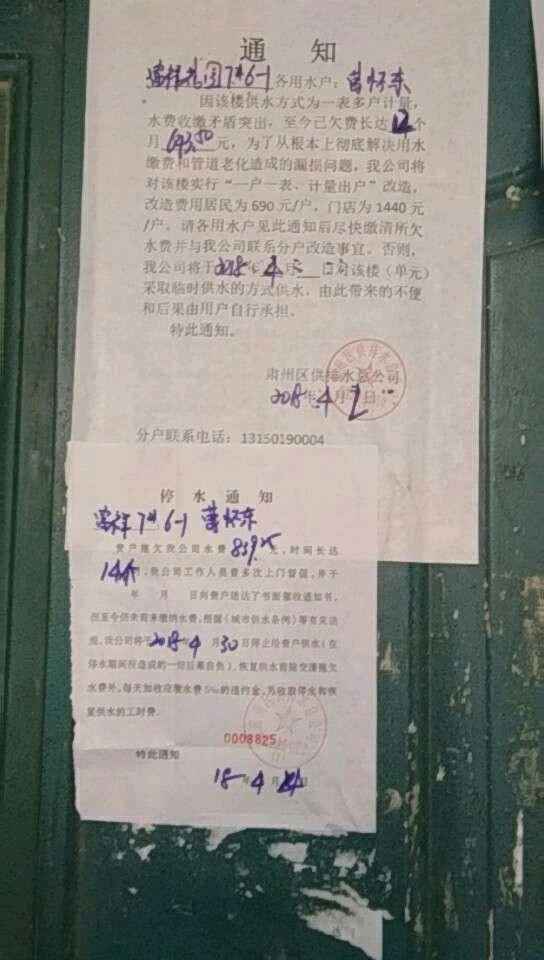 通 知
富祥花园7#6-1各用水户：曹怀东
因该楼供水方式为一表多户计量，
水费收缴矛盾突出，至今已欠费长达12个
月693.50元，为了从根本上彻底解决用水
缴费和管道老化造成的漏损问题，我公司将
对该楼实行“一户一表、计量出户”改造，
改造费用居民为690元/户，门店为1440元
/户。请各用水户见此通知后尽快缴清所欠
水费并与我公司联系分户改造事宜。否则，
我公司将于2018年4月 日对该楼（单元）
采取临时供水的方式供水，由此带来的不便
和后果由用户自行承担。
特此通知。
肃州区供排水总公司
2018年4月2日
分户联系电话：13150190004
停 水 通 知
富祥7#6-1 曹怀东
贵户拖欠我公司水费859.25元，时间长达
14个，我公司工作人员曾多次上门督促，并于
年 月 日向贵户送达了书面催收通知书，
但至今仍未前来缴纳水费，根据《城市供水条例》等有关法
规，我公司将于2018年4月30日停止给贵户供水（在
停水期间所造成的一切后果自负），恢复供水前除交清拖欠
水费外，每天加收应缴水费5‰的违约金，另收取停水和恢
复供水的工时费。
0008825
特此通知
18年4月 日